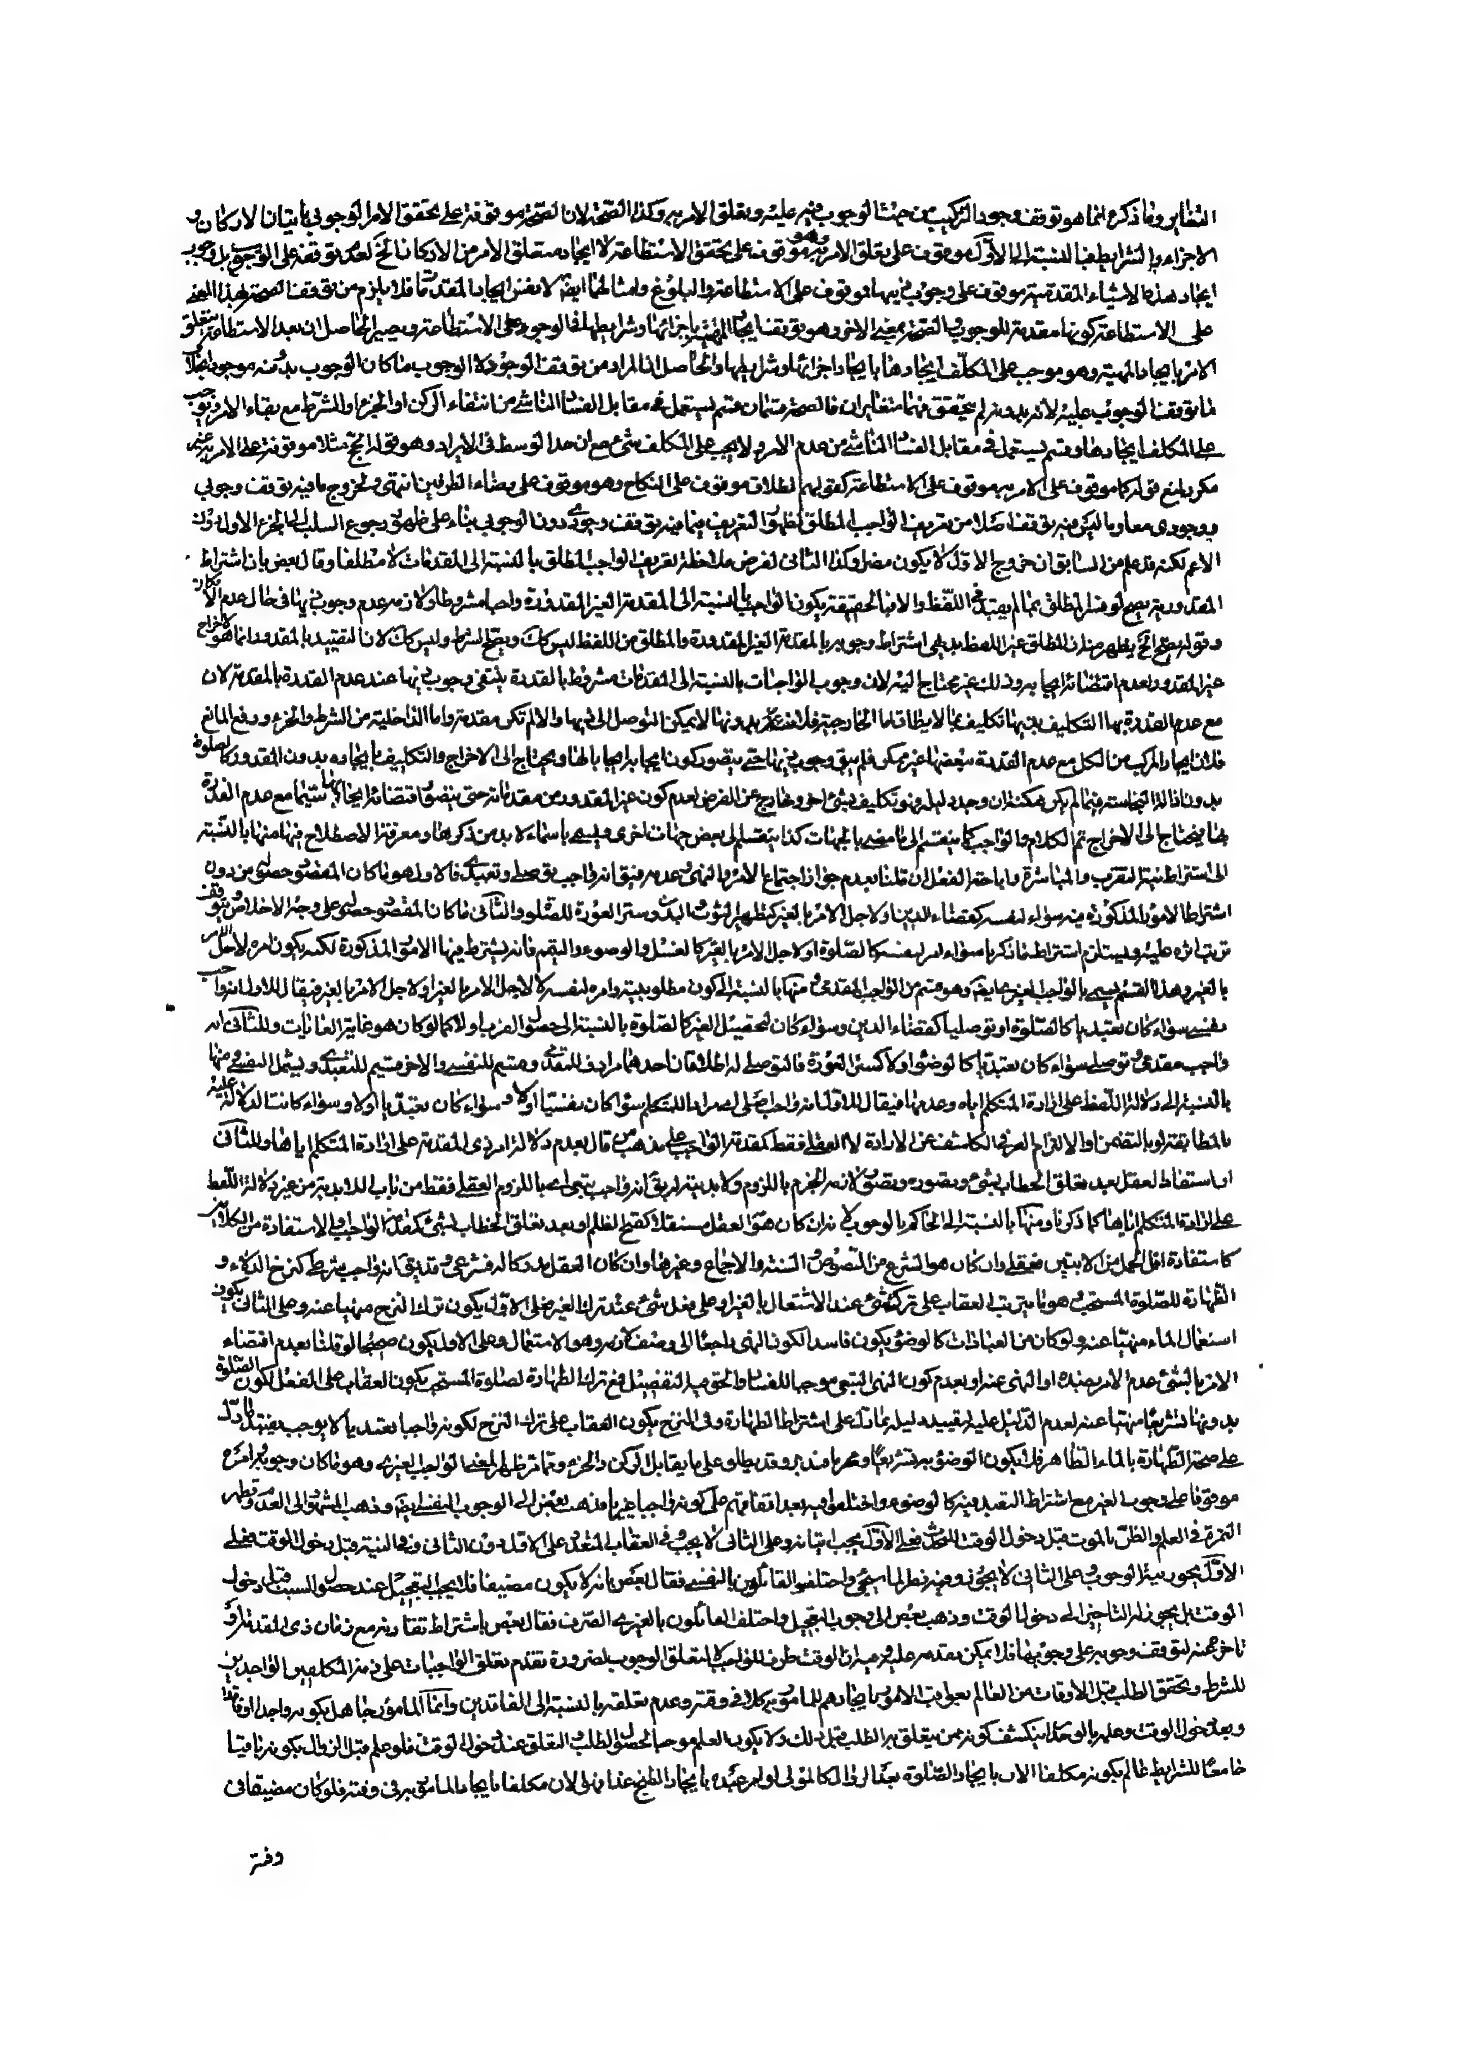 التغاير وما ذكره انما هو توقف وجود المركب من حيث الوجوب فيه عليه وتعلق الامر به وكذا الصحة لان الصحة موقوفة على تحقق الامر الوجوبي باتيان الاركان و
الاجزاء والشرايط فبالنسبة الى الاول موقوف على تعلق الامر به وهو موقوف على تحقق الاستطاعة لا ايجاد متعلق الامر من الاركان الخ لعدم توقفه على الوجوب بل وجوب
ايجاد هذه الاشياء المقدمية موقوف على وجوب ذيها موقوف على الاستطاعة والبلوغ وامثالهما ايضا لا نفس ايجاد المقدمة فلا يلزم من توقف الصحة بهذا المعنى
على الاستطاعة كونها مقدمة للوجوب الصحة بمعنى الاخر وهو توقف ايجاد المهية باجزائها وشرايطها فالوجود على الاستطاعة ويصير الحاصل ان بعد الاستطاعة يتعلق
الامر بايجاد المهية وهو موجب على المكلف ايجادها بايجاد اجزائها وشرايطها والحاصل ان المراد من توقف الوجود لا الوجوب ما كان الوجوب بدونه موجود
ما توقف الوجوب عليه لانه بدونه لم يتحقق فهما متغايران فالصحة قسمان قسم يستعمل في مقابل الفساد الناشى من انتفاء الركن او الجزء والشرط مع بقاء الامر ويوجب
على المكلف ايجادها وقسم يستعمل في مقابل الفساد الناشى من عدم الامر ولا يجب على المكلف شئ مع ان هذا الوسط في الايراد وهو قوله الحج مثلا موقوفة على الامر به غير
مكرر بل مع قوله كما موقوف على الامر به موقوف على الاستطاعة كقولهم الطلاق موقوف على النكاح وهو موقوف على رضاء الطرفين انتهى وخروج ما فيه توقف وجوبي
ووجودي معا وما ليس فيه توقف اصلا من تعريف الواجب المطلق لظهور التعريف فيما فيه توقف وجودي دون الوجوبي بناء على ظهور رجوع السلب الى الجزء الاول دون
الاعم لكنه قد علم من السابق ان خروج الاول لا يكون مضرا وكذا الثاني لفرض ملاحظة تعريف الواجب المطلق بالنسبة الى المقدمات لا مطلقا وقال بعض بان اشتراط
المقدورية يصح لو فسر المطلق بما لم يقيد في اللفظ والا فبالحقيقة يكون الواجب بالنسبة الى المقدمة الغير المقدورة واجبا مشروطا ولازمه عدم وجوب ذيها في حال عدم الامكان
وقوله يصح الخ يظهر منه ان المطلق عند اللفظ بدليل اشتراط وجوبه بالمقدمة الغير المقدورة والمطلق من اللفظ ليس كك ويصح الشرط وليس كك لان التقييد بالمقدور انما هو لاخراج
غير المقدور لعدم اقتضائه ايجابه وذلك غير محتاج اليه لان وجوب الواجبات بالنسبة الى المقدمات مشروط بالقدرة ينتفى وجوب ذيها عند عدم القدرة بالمقدمة لان
مع عدم القدرة بها التكليف بذيها تكليف بما لا يطاق اما الخارجية فلان بدونها لا يمكن التوصل الى ذيها والا لم تكن مقدمة واما الداخلية من الشرط والجزء ورفع المانع
فلان ايجاد المركب من الكل مع عدم القدرة ببعضها غير ممكن فلم يبق وجوب ذيها حتى يتصور كون ايجابه ايجابا لها ويحتاج الى الاخراج والتكليف بايجاده بدون المقدور كالصلوة
بدون ازالة النجاسة فيما لم يكن ممكنة ان وجد دليله فهو تكليف بشئ اخر وخارج عن الفرض لعدم كون غير المقدور من مقدماته حتى يتصور اقتضائه ايجابها سيما مع عدم القدرة
بها فيحتاج الى الاخراج تم الكلام والواجب كما ينقسم الى ما مضى بالجهات كذا ينقسم الى بعض جهات اخرى ويسمى باسماء لا بد من ذكرها ومعرفة الاصطلاح فيها منها بالنسبة
الى اشتراط نية التقرب والمباشرة واباحة الفعل ان قلنا بعدم جواز اجتماع الامر والنهى وعدمه فيق انه واجب توصلي وتعبدي فالاول هو ما كان المقصود حصوله من دون
اشتراط الامور المذكورة فيه سواء لنفسه كقضاء الدين او لاجل الامر بالغير كتطهير الثوب والبدن وستر العورة للصلوة والثاني ما كان المقصود حصوله على وجه الاخلاص يتوقف
ترتب اثره عليه ويستلزم اشتراط ما ذكر ما سواء امر بنفسه كالصلوة او لاجل الامر بالغير كالغسل والوضوء والتيمم فانه يشترط فيها الامور المذكورة لكنه يكون امره لاجل الامر
بالغير وهذا القسم يسمى بالواجب الغير مما يقع وهو قسم من الواجب المقدمي ومنها بالنسبة الى كون مطلوبيته وامره لنفسه لا لاجل الامر بالغير او لاجل الامر بالغير فيقال للاول انه واجب
نفسي سواء كان تعبديا كالصلوة او توصليا كقضاء الدين وسواء كان لتحصيل الغير كالصلوة بالنسبة الى حصول القرب اولا كما لو كان هو غاية الغايات وللثاني انه
واجب مقدمي توصلي سواء كان تعبديا كالوضوء اولا كستر العورة فالتوصلي له اطلاقان احدهما مرادف للمقدمي وقسيم للنفسي والاخر قسيم للتعبدي ويشمل النفسي ومنها
بالنسبة الى دلالة اللفظ على ارادة المتكلم اياه وعدمها فيقال للاول انه واجب اصلي لصراحة المتكلم سواء كان نفسيا اولا وسواء كان تعبديا اولا وسواء كانت الدلالة عليه
بالمطابقة او بالتضمن او الالتزام العرفي الكاشف عن الارادة لا العقلي فقط كمقدمة الواجب على مذهب من قال بعدم دلالة امر ذي المقدمة على ارادة المتكلم اياها وللثاني
ما استفاد العقل بعد تعلق الخطاب بشئ وتصوره وتصور لازمه الجزم باللزوم ولابديته له يق انه واجب تبعي اي باللزوم العقلي فقط من باب اللابدية من غير دلالة اللفظ
على ارادة المتكلم اياها كما ذكرنا ومنها بالنسبة الى الحاكم بالوجوب لانه ان كان هو العقل مستقلا كقبح الظلم او بعد تعلق الخطاب بشئ كمقدمة الواجب والاستفادة من الكلامين
كاستفادة اقل الحمل من الايتين فعقلي وان كان هو الشرع من النصوص والسنة والاجماع وغيرها وان كان العقل يدركه فشرعي وقد يق انه واجب شرطي كنزح الدلاء و
الطهارة للصلوة المستحب وهو ما يترتب العقاب على ترك شئ عند الاشتغال بالغير او على فعل شئ عند ترك الغير فعلى الاول يكون ترك النزح منهيا عنه وعلى الثاني يكون
استعمال الماء منهيا عنه ولو كان من العبادات كالوضوء يكون فاسدا لكون النهي راجعا الى وصف لازمه وهو الاستعمال وعلى الاول يكون صحيحا لو قلنا بعدم اقتضاء
الامر بالشئ عدم الامر بضده او النهي عنه او بعدم كون النهى التبعي موجبا للفساد والحق فيه التفصيل ففي ترك الطهارة لصلوة المستحب يكون العقاب على الفعل لكون الصلوة
بدونها تشريعا منهيا عنه لعدم الدليل عليه لتقييد دليله بما دل على اشتراط الطهارة وفى النزح يكون العقاب على ترك النزح لكونه واجبا تعبديا لا يوجب تقييد ما دل
على صحة الطهارة بالماء الطاهر فلا يكون الوضوء به تشريعا ومحرما منه به وقد يطلق على ما يقابل الركن والجزء وتمامه ظهر معنى الواجب الغيري وهو ما كان وجوبه وامره
موقوفا على وجوب الغير مع اشتراط التعبد فيه كالوضوء واختلفوا فيه بعد اتفاقهم على كونه واجبا غيريا فذهب بعض الى الوجوب النفسي ايضا وذهب المشهور الى العدم وتظهر
الثمرة في العلم والظن بالموت قبل دخول الوقت للمحدث فعلى الاول يجب اتيانه وعلى الثاني لا يجب وفى العقاب المتعدد على الاول دون الثاني وفى النية قبل دخول الوقت فعلى
الاول يجوز نية الوجوب وعلى الثاني لا يجوز وفيه نظر لما سيجئ واختلفوا القائلون بالنفسي فقال بعض بانه لا يكون مضيقا فلا يجب التعجيل عند حصول السبب قبل دخول
الوقت بل يجوز له التاخير الى دخول الوقت وذهب بعض الى وجوب التعجيل واختلف القائلون بالغيري الصرف فقال بعض باشتراط تقارنه مع زمان ذي المقدمة او
تاخره عنه لتوقف وجوبه على وجوبها فلا يمكن تقدمه عليه وفيه ان الوقت ظرف للواجب لا لتعلق الوجوب لضرورة تقدم تعلق الواجبات على ذمة المكلفين الواجدين
للشرط وتحقق الطلب قبل الاوقات من العالم بعواقب الامور بايجادهم للمامور به كلا في وقته وعدم تعلقه بالنسبة الى الفاقدين وانما المامور جاهل بكونه واجدا او فاقدا
وبعد دخول الوقت وعلمه بالوجدان ينكشف كونه ممن يتعلق به الطلب قبل ذلك ولا يكون العلم موجبا لحصول الطلب والتعلق عند دخول الوقت فلو علم قبل الزوال بكونه باقيا
جامعا للشرايط عالم بكونه مكلفا الان بايجاد الصلوة بعد الزوال كالمولى او امر عبده بايجاد الطبخ غدا من اول الان مكلفا بايجاد المامور به في وقته فلو كان مضيقا في
وقته